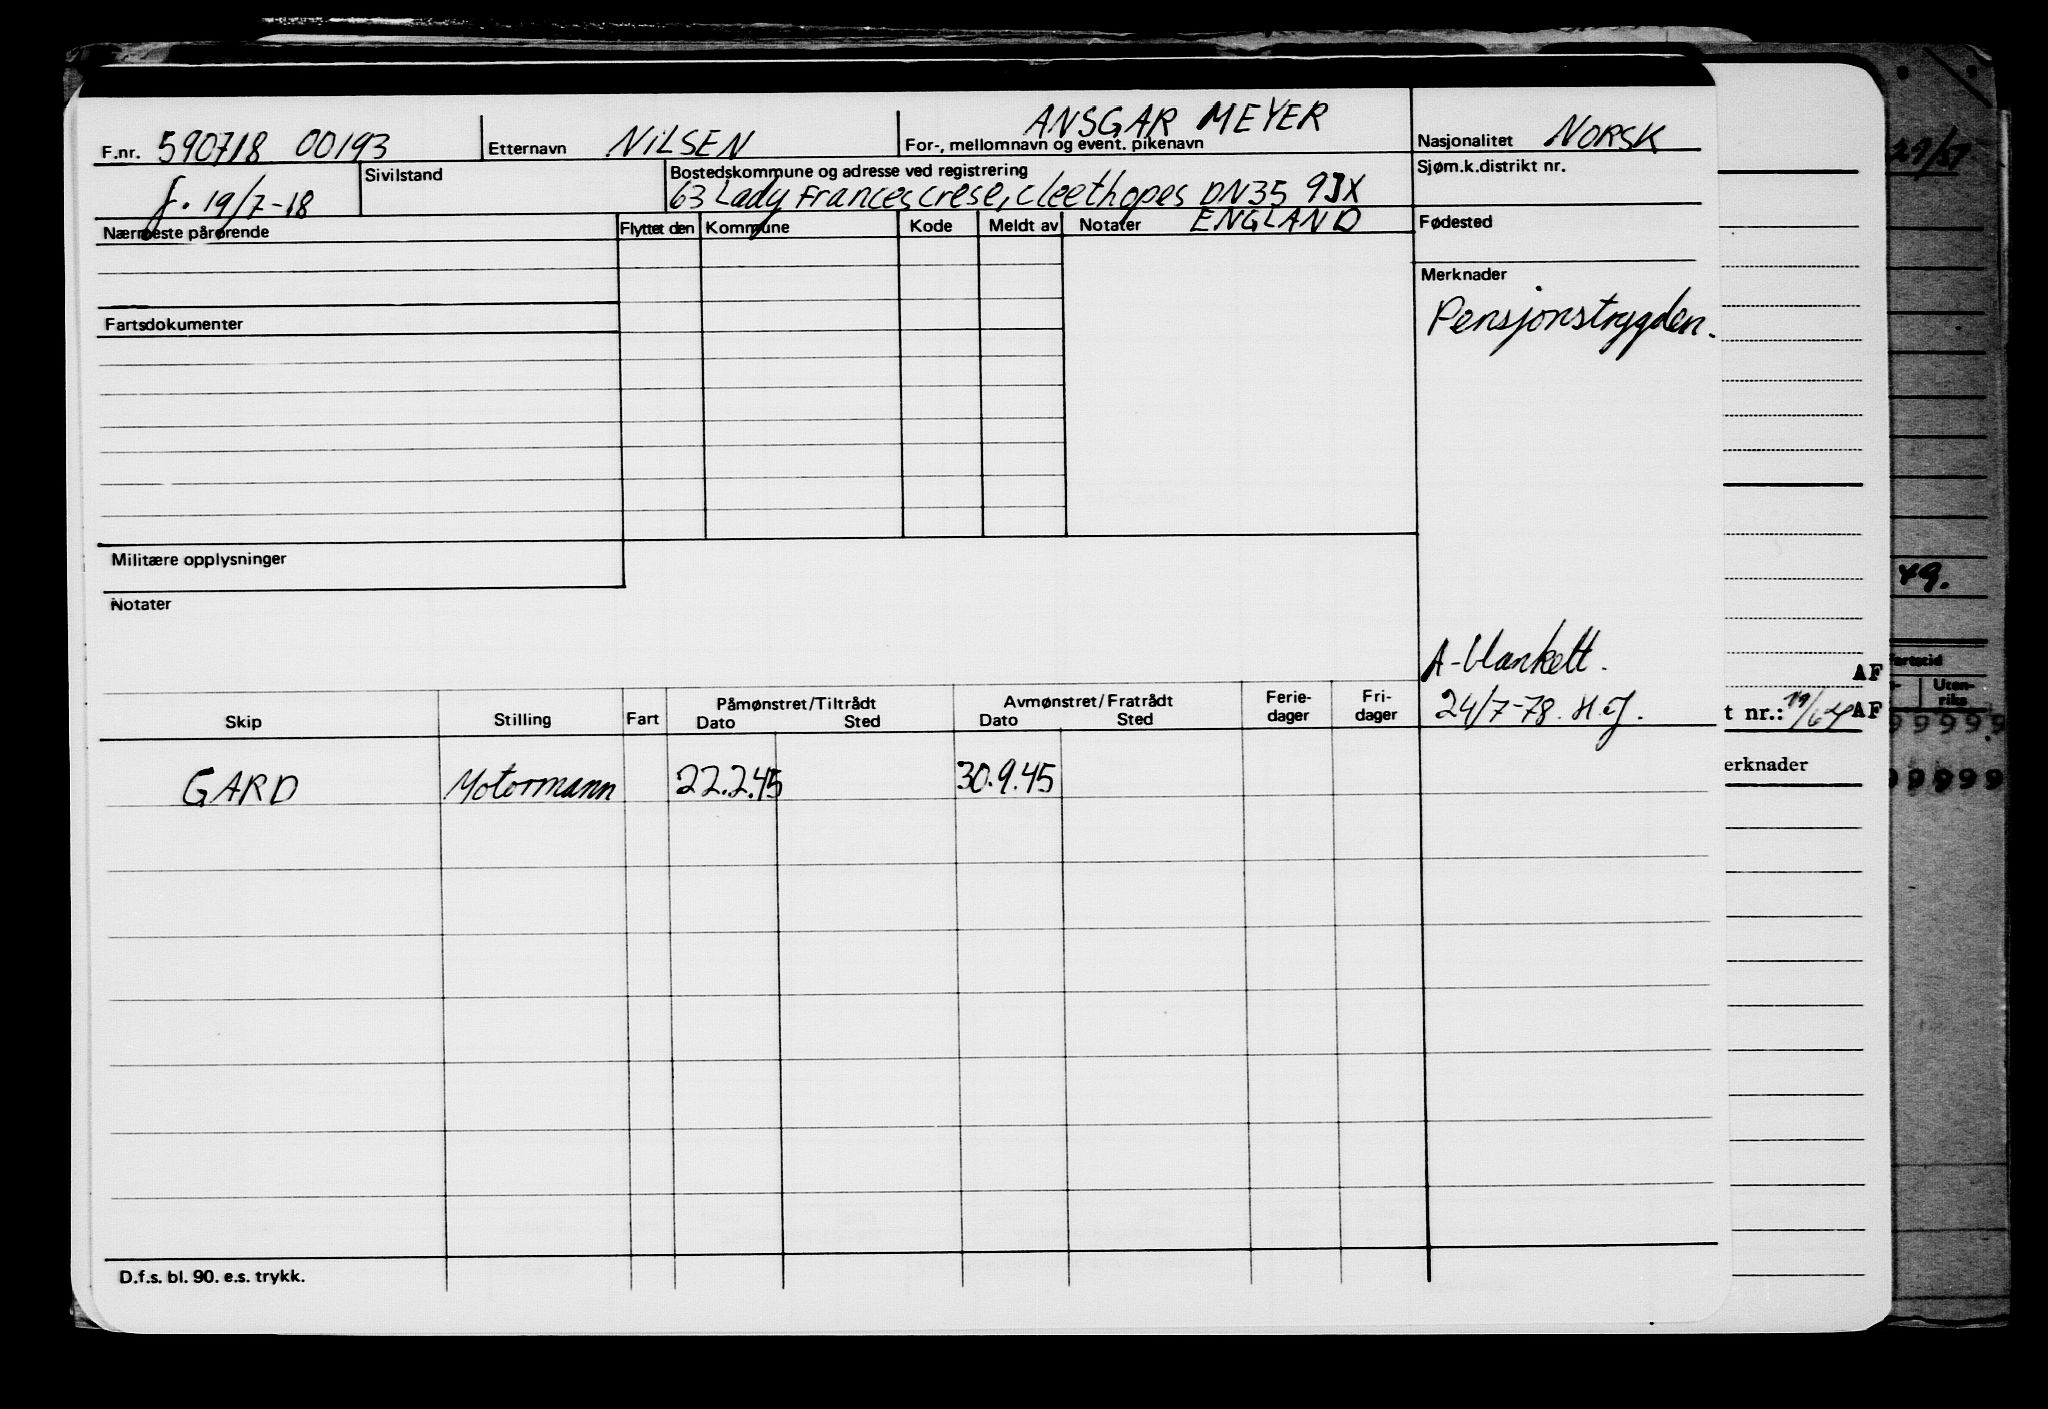 F.nr. 590718 00193 Etternavn NILSEN ANSGAR MEYER For-, mellomnavn og event. pikenavn Nasjonalitet NORSK
f. 19/7-18 Sivilstand Bostedskommune og adresse ved registrering Sjøm.k.distrikt nr.
63 Lady Frances Crese, Cleethopes DN35 9JX
ENGLAND
Nærmeste pårørende Flyttet den Kommune Kode Meldt av Notater Fødested
Merknader
Pensjonstrygden.
Fartsdokumenter
Militære opplysninger
Notater
A-blankett.
24/7-78. H.J.
Skip Stilling Fart Påmønstret/Tiltrådt Dato Sted Avmønstret/Fratrådt Dato Sted Ferie-dager Fri-dager
GARD Motormann 22.2.45 30.9.45
D.f.s. bl. 90. e.s. trykk.
AF
t nr.: AF
erknader
49.
artstid
Uten-
riks
9 9 9 9 9
9 9 9 9 9